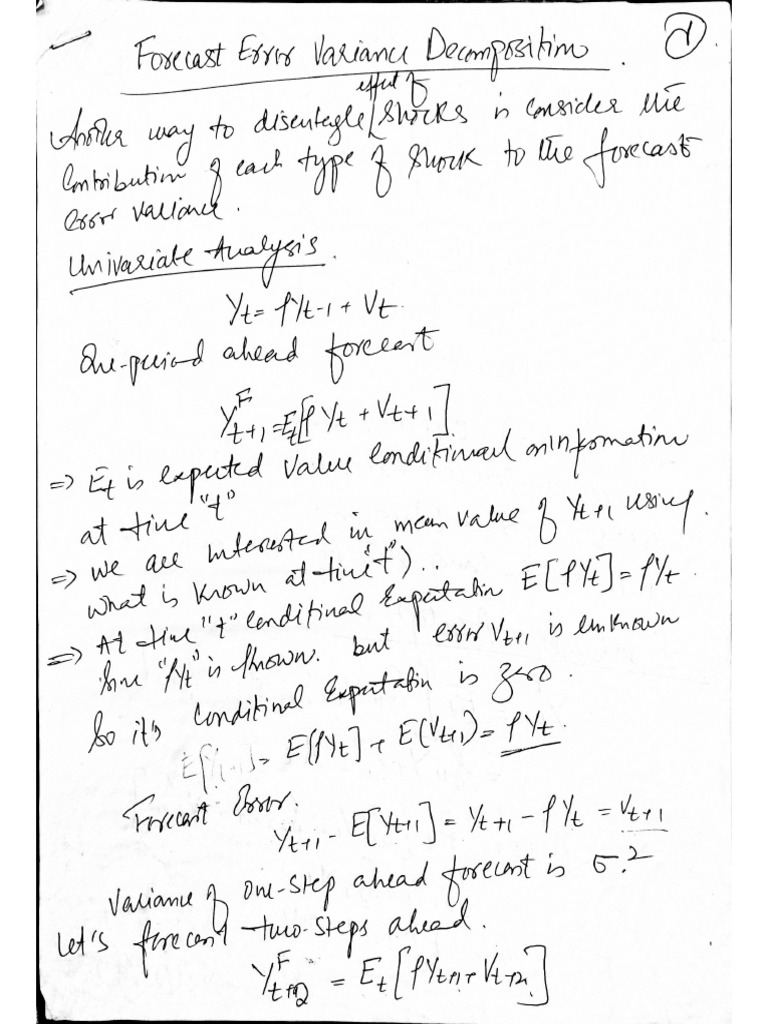 Forecast Error Variance Decomposition. ①
effect of
Another way to disentegle shocks is consider the
Contribution of each type of shock to the forecast
error variance.
Univariate Analysis.
Yt = ρYt-1 + Vt.
One-period ahead forecast
Y^F t+1 = Et[ρYt + Vt+1]
=> Et is expected value conditional on information
at time "t"
=> we are interested in mean value of Yt+1 using
what is known at time "t")..
=> At time "t" conditinal Expectation E[ρYt] = ρYt
Sine "ρYt" is known. but error Vt+1 is unknown
So it's conditinal Expectation is zero.
= E[ρYt] + E(Vt+1) = ρYt.
Forecast Error.
Yt+1 - E[Yt+1] = Yt+1 - ρYt = Vt+1
Variance of one-step ahead forecast is σ.²
Let's forecast two-steps ahead.
Y^F t+2 = Et[ρYt+1 + Vt+2]